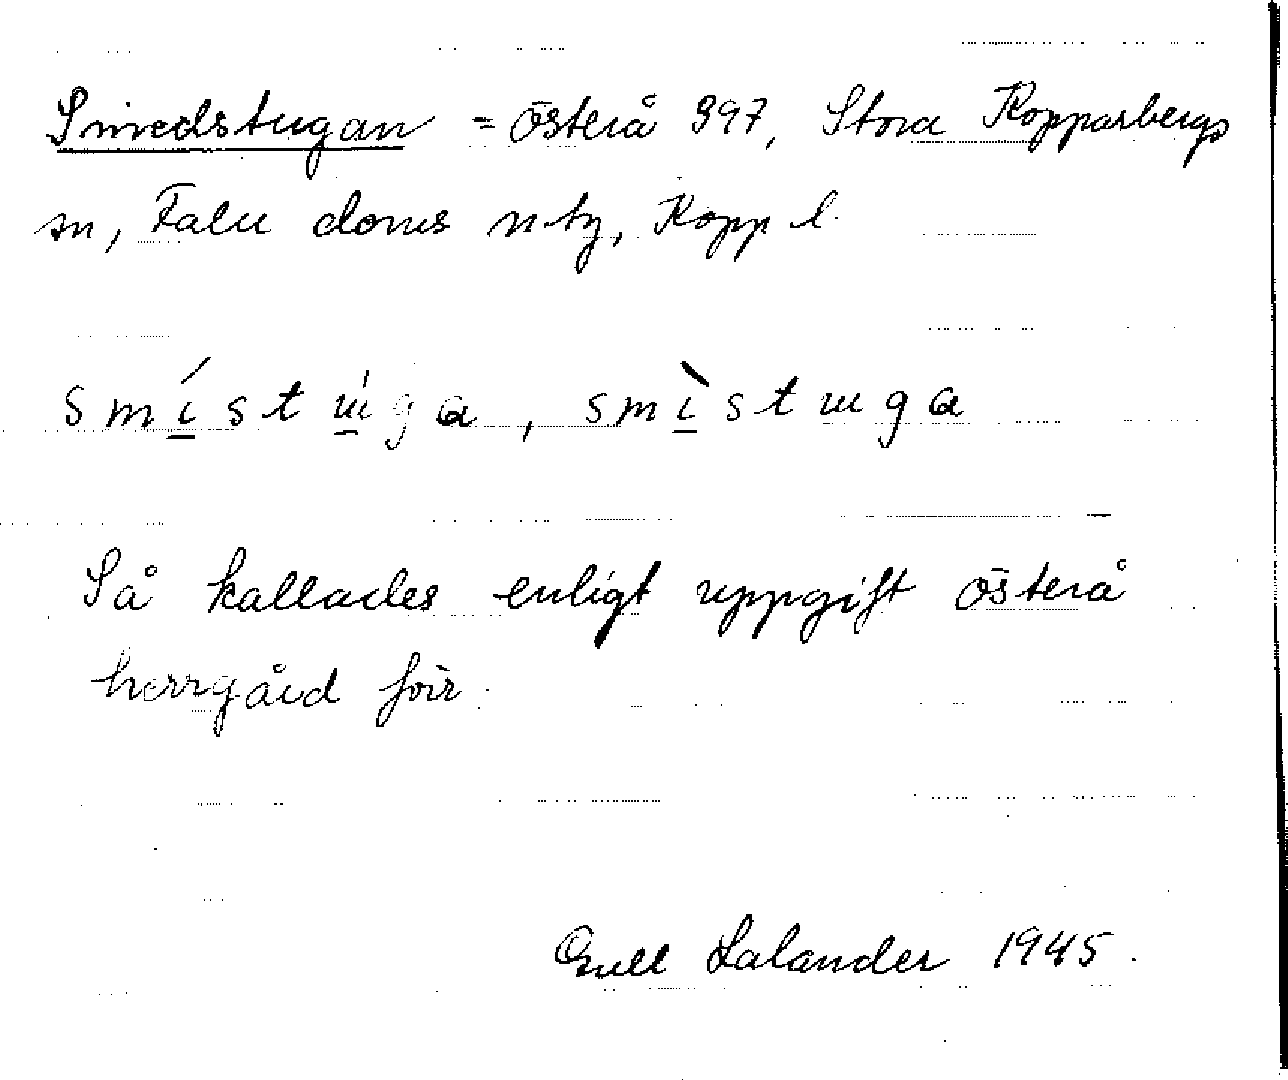 Smedstugan = Österå 397, Stora Kopparbergs
sn, Falu doms ntg, Kopp l.
smístúga, smìstuga
Så kallades enligt uppgift Österå
herrgård förr.
Gull Lalander 1945.